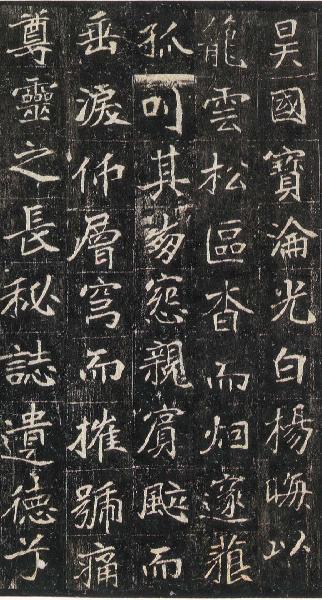 昊國寶淪光白楊晦以
籠雲松區杳而烟邃藐
孤叩其親賓颭而
垂淚仰層穹而摧號痛
尊靈之長秘誌遺德兮